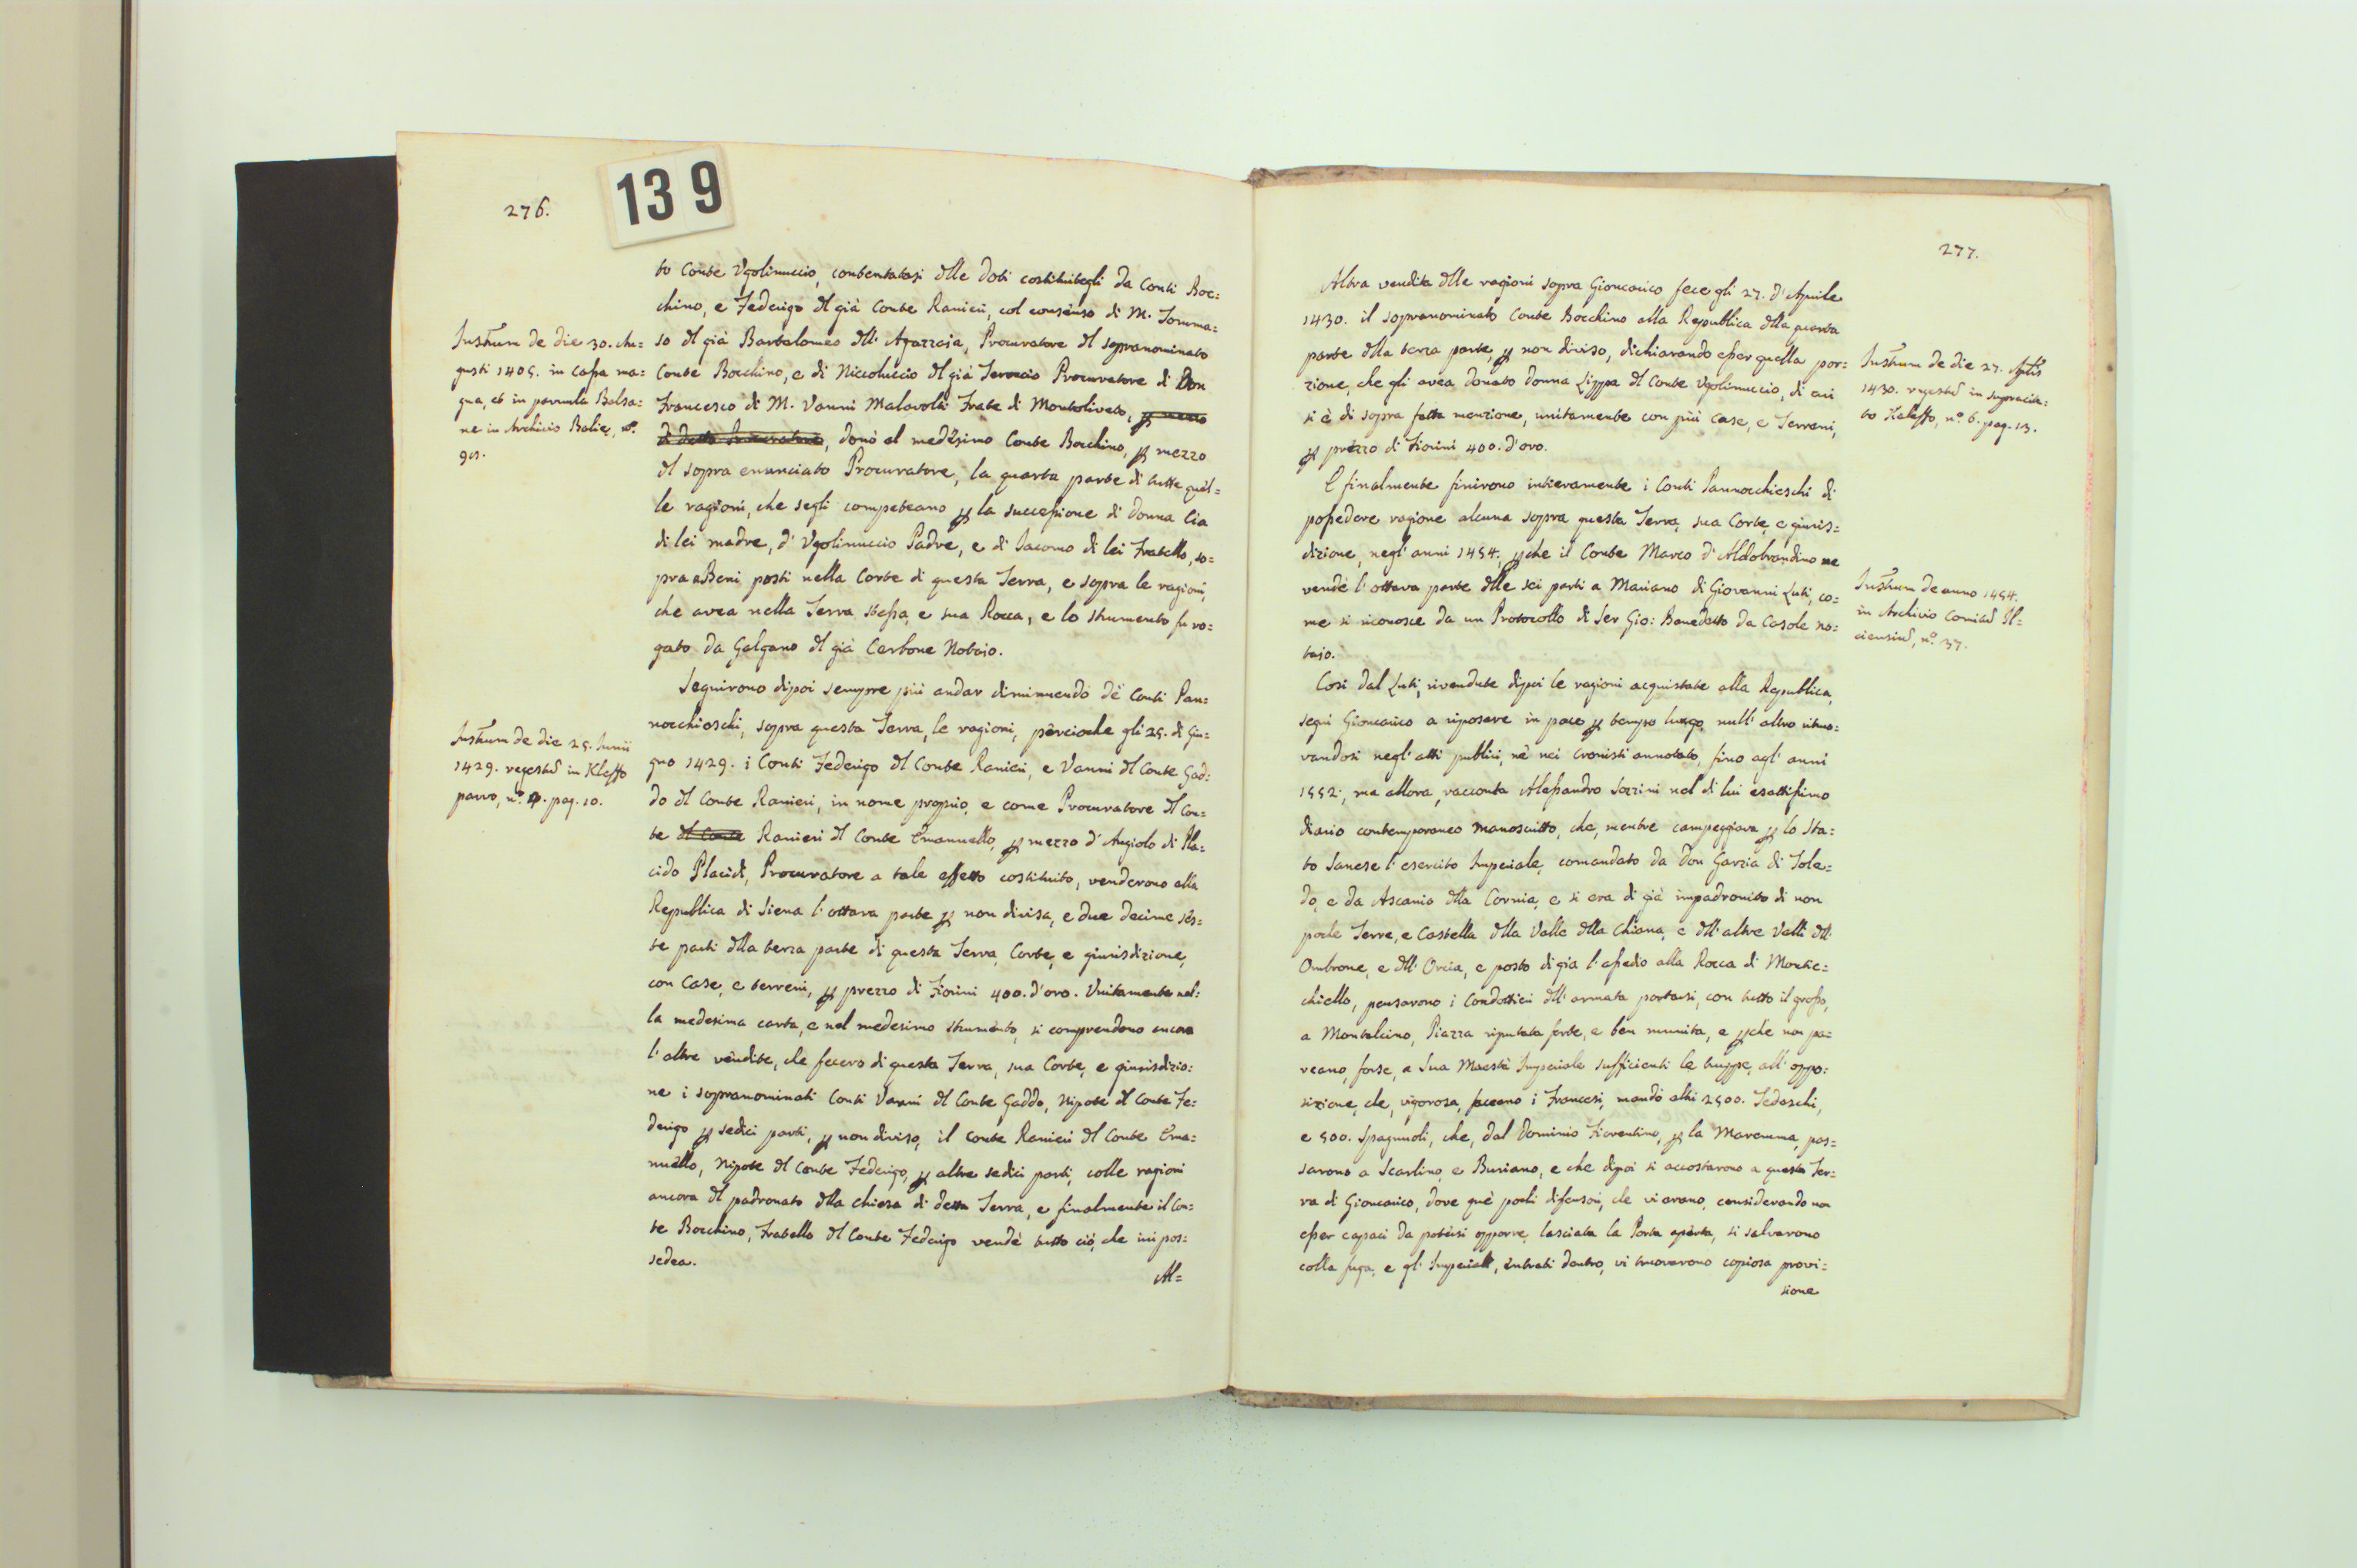 276.
139
to Conte Ugolinuccio, contentatasi dlle doti costituitegli da Conti Boc=
chino, e Federigo dl già Conte Ranieri, col consenso di M. Tomma=
so dl già Bartolomeo dll' Agazzaia, Procuratore dl sopranominato
Conte Bocchino, e di Niccoluccio dl già Procuratore di Don
Francesco di M. Vanni Malavolti Frate di Montoliveto, p mezzo
di detto Procuratore, donò al medesimo Conte Bocchino, p mezzo
dl sopra enunciato Procuratore, la quarta parte di tutte quel=
le ragioni, che segli competeano p la successione di donna Cia
di lei madre, d' Ugolinuccio Padre, e di Iacomo di lei Fratello, so=
pra a Beni posti nella Corte di questa Terra, e sopra le ragioni,
che avea nella Terra stessa, e sua Rocca, e lo strumento fu ro=
gato da Galgano dl già Cerbone Notaio.
Instrum de die 30. Au=
gusti 1405. in Capsa ma=
gna, et in parvula Balsa=
ne in Archivio Balie, n°.
Seguirono dipoi sempre più andar diminuendo de' Conti Pan=
nocchieschi, sopra questa Terra, le ragioni, perciochè gli 25. di Giu=
gno 1429. i Conti Federigo dl Conte Ranieri, e Vanni dl Conte Gad=
do dl Conte Ranieri, in nome proprio, e come Procuratore dl Con=
te dl Conte Ranieri dl Conte Emanuello, p mezzo d' Angiolo di Pla=
cido Placidi, Procuratore a tale effetto costituito, venderono alla
Republica di Siena l' ottava parte p non divisa, e due decime ses=
te parti dlla terza parte di questa Terra, Corte, e giurisdizione,
con Case, e terreni, p prezzo di Fiorini 400. d'oro. Unitamente nel=
la medesima carta, e nel medesimo strumento, si comprendono ancora
l' altre vendite, che fecero di questa Terra, sua Corte, e giurisdizio=
ne i sopranominati Conti Vanni dl Conte Gaddo, Nipote dl Conte Fe=
derigo p sedici parti, p non diviso, il Conte Ranieri dl Conte Ema=
nuello, Nipote dl Conte Federigo, p altre sedici parti, colle ragioni
ancora dl padronato dlla Chiesa di detta Terra, e finalmente il Con=
te Bocchino, Fratello dl Conte Federigo vendè tutto ciò, che ivi pos=
sedea.
Al=
Instrum de die 25. Iunii
1429. regestu in Kleffo
parvo, n°. pag. 10.
277.
Altra vendita dlle ragioni sopra Gioncarico fece gli 27. d' Aprile
1430. il sopranominato Conte Bocchino alla Republica dlla quarta
parte dlla terza parte, p non diviso, dichiarando esser quella por=
zione, che gli avea donato donna Lippa dl Conte Ugolinuccio, di cui
si è di sopra fatta menzione, unitamente con più Case, e Terreni,
p prezzo di Fiorini 400. d'oro.
Instrum de die 27. Aplis
1430. regestu in supracita=
to Kaleffo, n°. 6. pag. 13.
E finalmente finirono intieramente i Conti Pannocchieschi di
possedere ragione alcuna sopra questa Terra, sua Corte, e giuris=
dizione, negl' anni 1454. pche il Conte Marco d' Aldobrandino ne
vendè l' ottava parte dlle sei parti a Mariano di Giovanni Luti, co=
me si riconosce da un Protocollo di Ser Gio: Benedetto da Casole No=
taio.
Instrum de anno 1454.
in Archivio Comitis Il=
ciensiu, n°. 37.
Così dal Luti, rivendute dipoi le ragioni acquistate alla Republica,
seguì Gioncarico a riposare in pace p tempo lungo, null' altro ritro=
vandosi negl' atti publici, nè nei Cronisti annotato, fino agl' anni
1552; ma allora, racconta Alessandro Sozzini nel di lui esattissimo
diario contemporaneo manoscritto, che, mentre campeggiava p lo Sta=
to Sanese l' esercito Imperiale, comandato da Don Garzia di Tole=
do, e da Ascanio dlla Cornia, e si era di già impadronito di non
poche Terre, e Castella dlla Valle dlla Chiana, e dll' altre Valli dll'
Ombrone, e dll' Orcia, e posto di già l' assedio alla Rocca di Montic=
chiello, pensarono i Condottieri dll' armata portarsi, con tutto il grosso,
a Montalcino, Piazza riputata forte, e ben munita, e pche non pa=
reano, forse, a Sua Maestà Imperiale sufficienti le truppe, all' oppo=
sizione, che, vigorosa, faceano i Francesi, mandò altri 2500. Tedeschi,
e 500. Spagnuoli, che, dal Dominio Fiorentino, p la Maremma, pas=
sarono a Scarlino, e Buriano, e che dipoi si accostarono a questa Ter=
ra di Gioncarico, dove que' pochi difensori, che vi erano, considerando non
esser capaci da potersi opporre, lasciata la Porta aperta, si salvarono
colla fuga, e gl' Imperiali, entrati dentro, vi trovarono copiosa provi=
sione